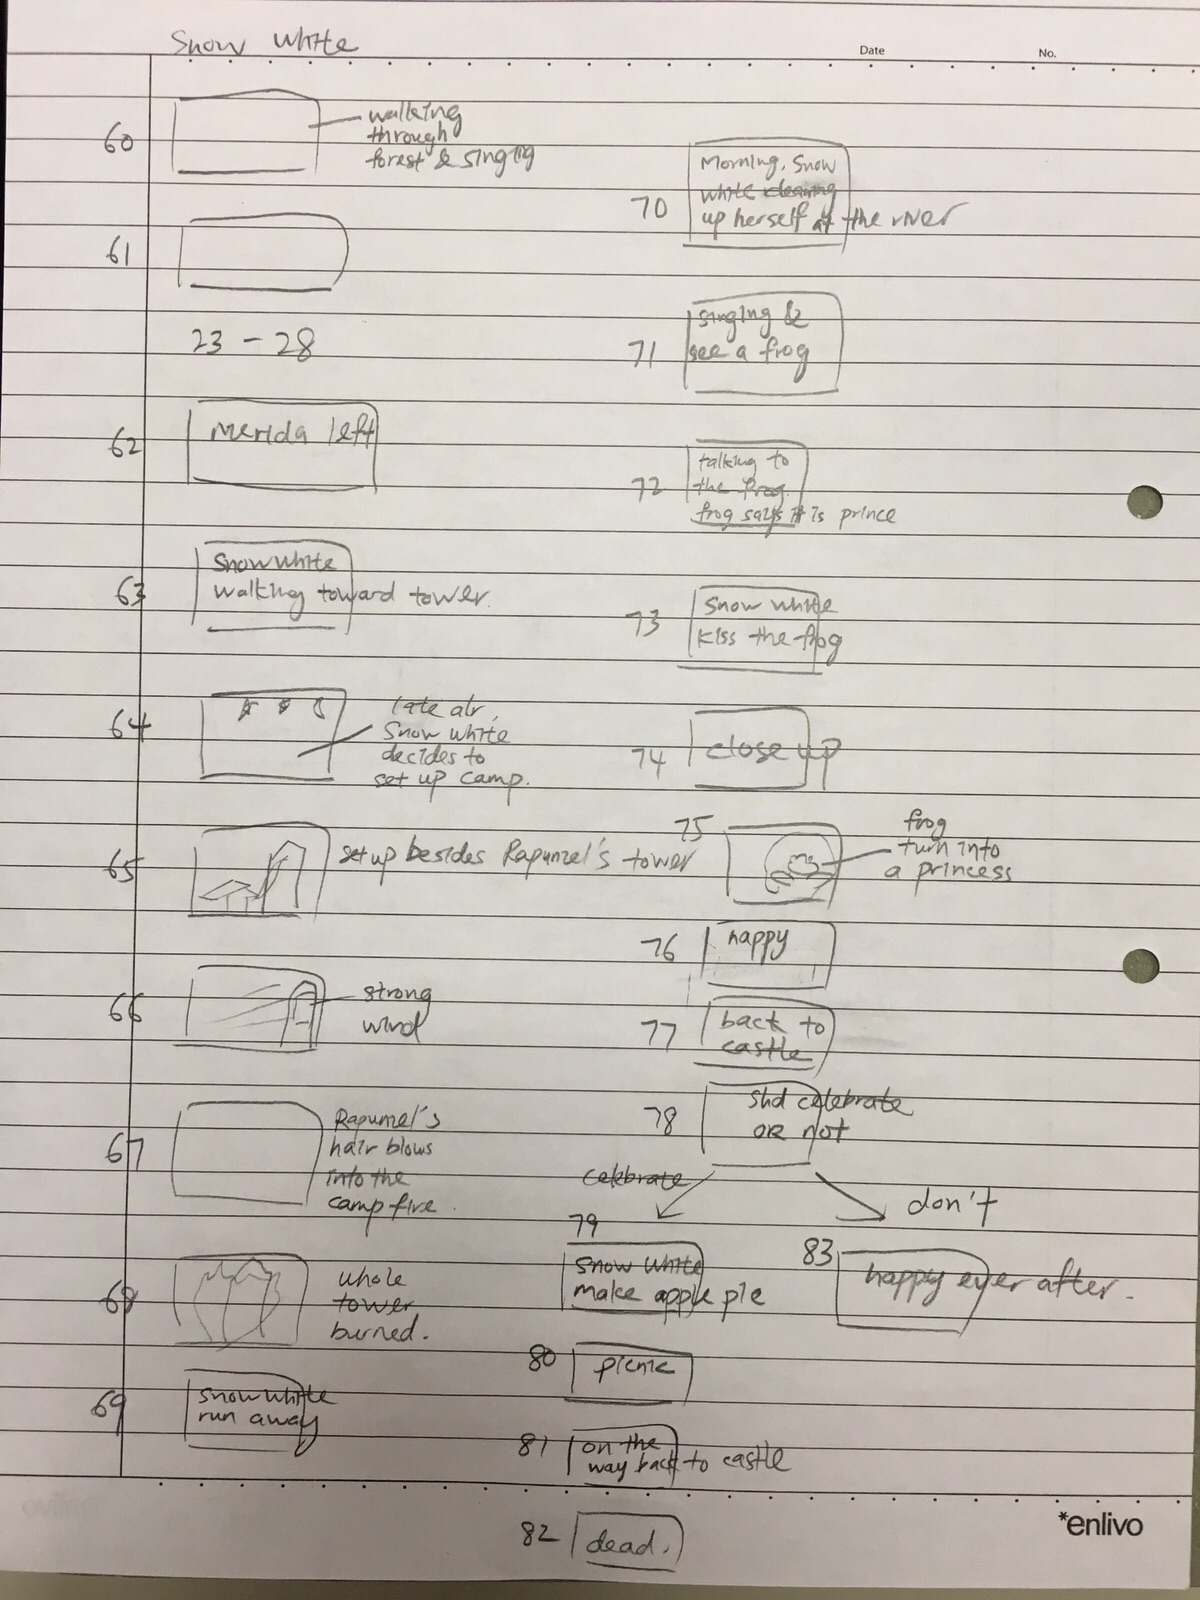 Snow White
Date
No.
60
walking
through
forest & singing
61
23 - 28
62
Merida left
63
Snow white
walking toward tower.
64
Snow white
decides to
set up camp.
65
set up besides Rapunzel's tower
66
strong
wind
67
Rapunzel's
hair blows
into the
camp fire.
68
whole
tower
burned.
69
Snow white
run away
70
Morning, Snow
white cleaning
up herself at the river
71
singing &
see a frog
72
talking to
the frog.
frog says it is prince
73
Snow white
kiss the frog
74
close up
75
frog
turn into
a princess
76
happy
77
back to
castle
78
shd celebrate
OR not
celebrate
don't
79
Snow white
make apple pie
83
happy ever after.
80
picnic
81
on the
way back to castle
82
dead.
*enlivo